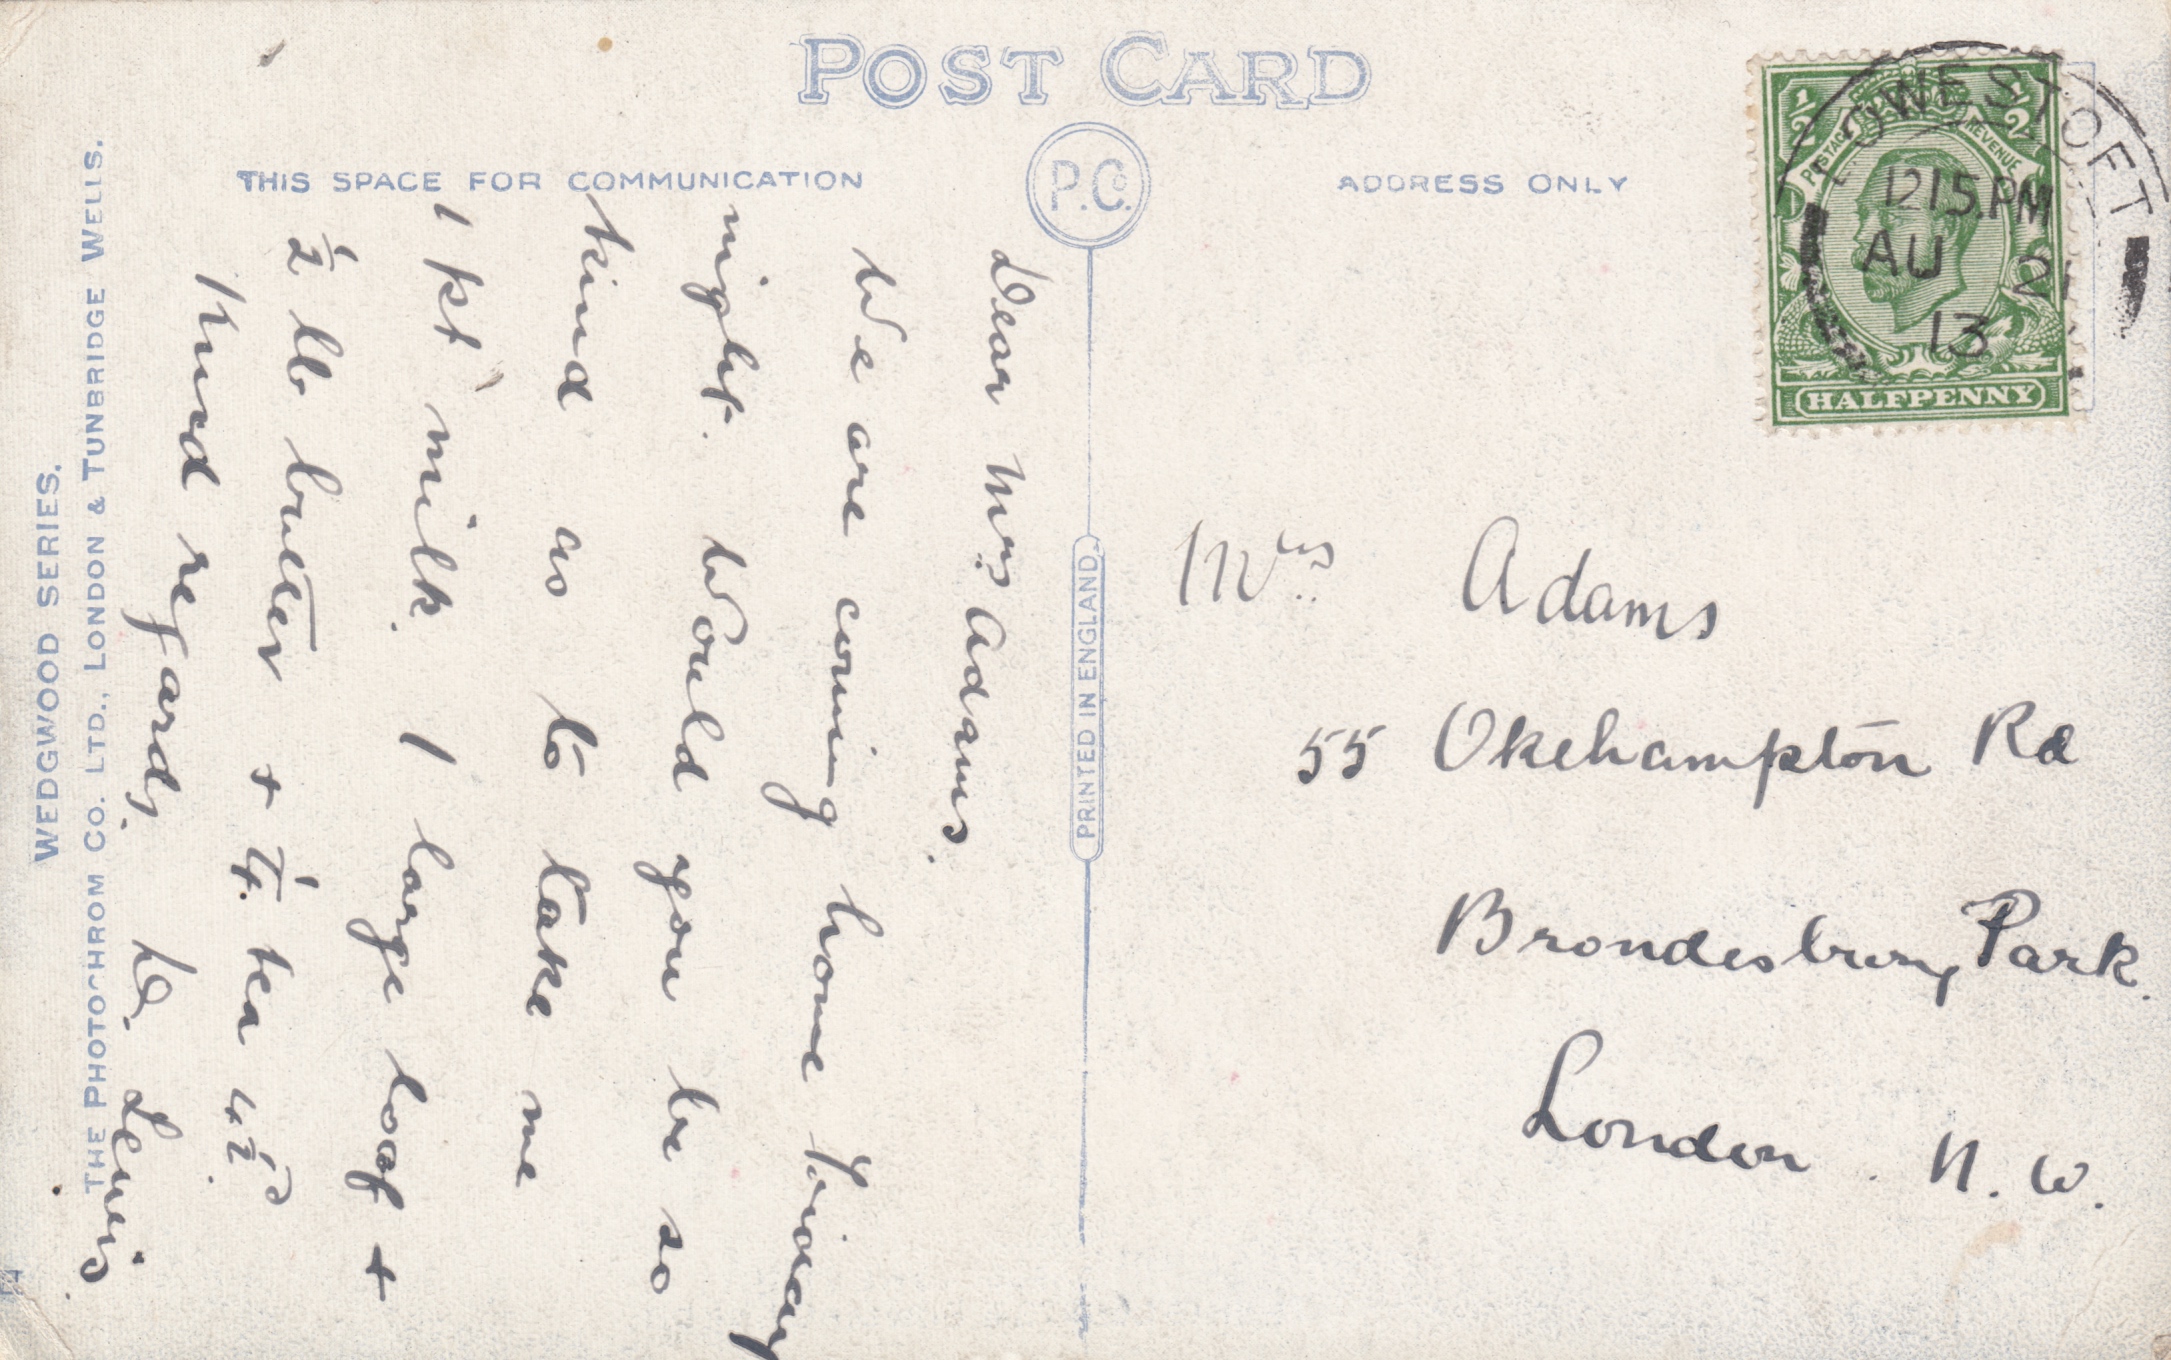 POST CARD
THIS SPACE FOR COMMUNICATION
P.Co.
ADDRESS ONLY
½ ½
POSTAGE REVENUE
HALFPENNY
LOWESTOFT
12 15.PM
AU 21
13
Dear Mrs Adams.
We are coming home Friday
night. Would you be so
kind as to take me
1 pt milk. 1 large loaf +
½ lb butter + ¼ tea 4½d
Kind regards. W. Lewis.
Mrs Adams
55 Okehampton Rd
Brondesbury Park.
London. N. W.
PRINTED IN ENGLAND.
WEDGWOOD SERIES.
THE PHOTOCHROM CO. LTD., LONDON & TUNBRIDGE WELLS.